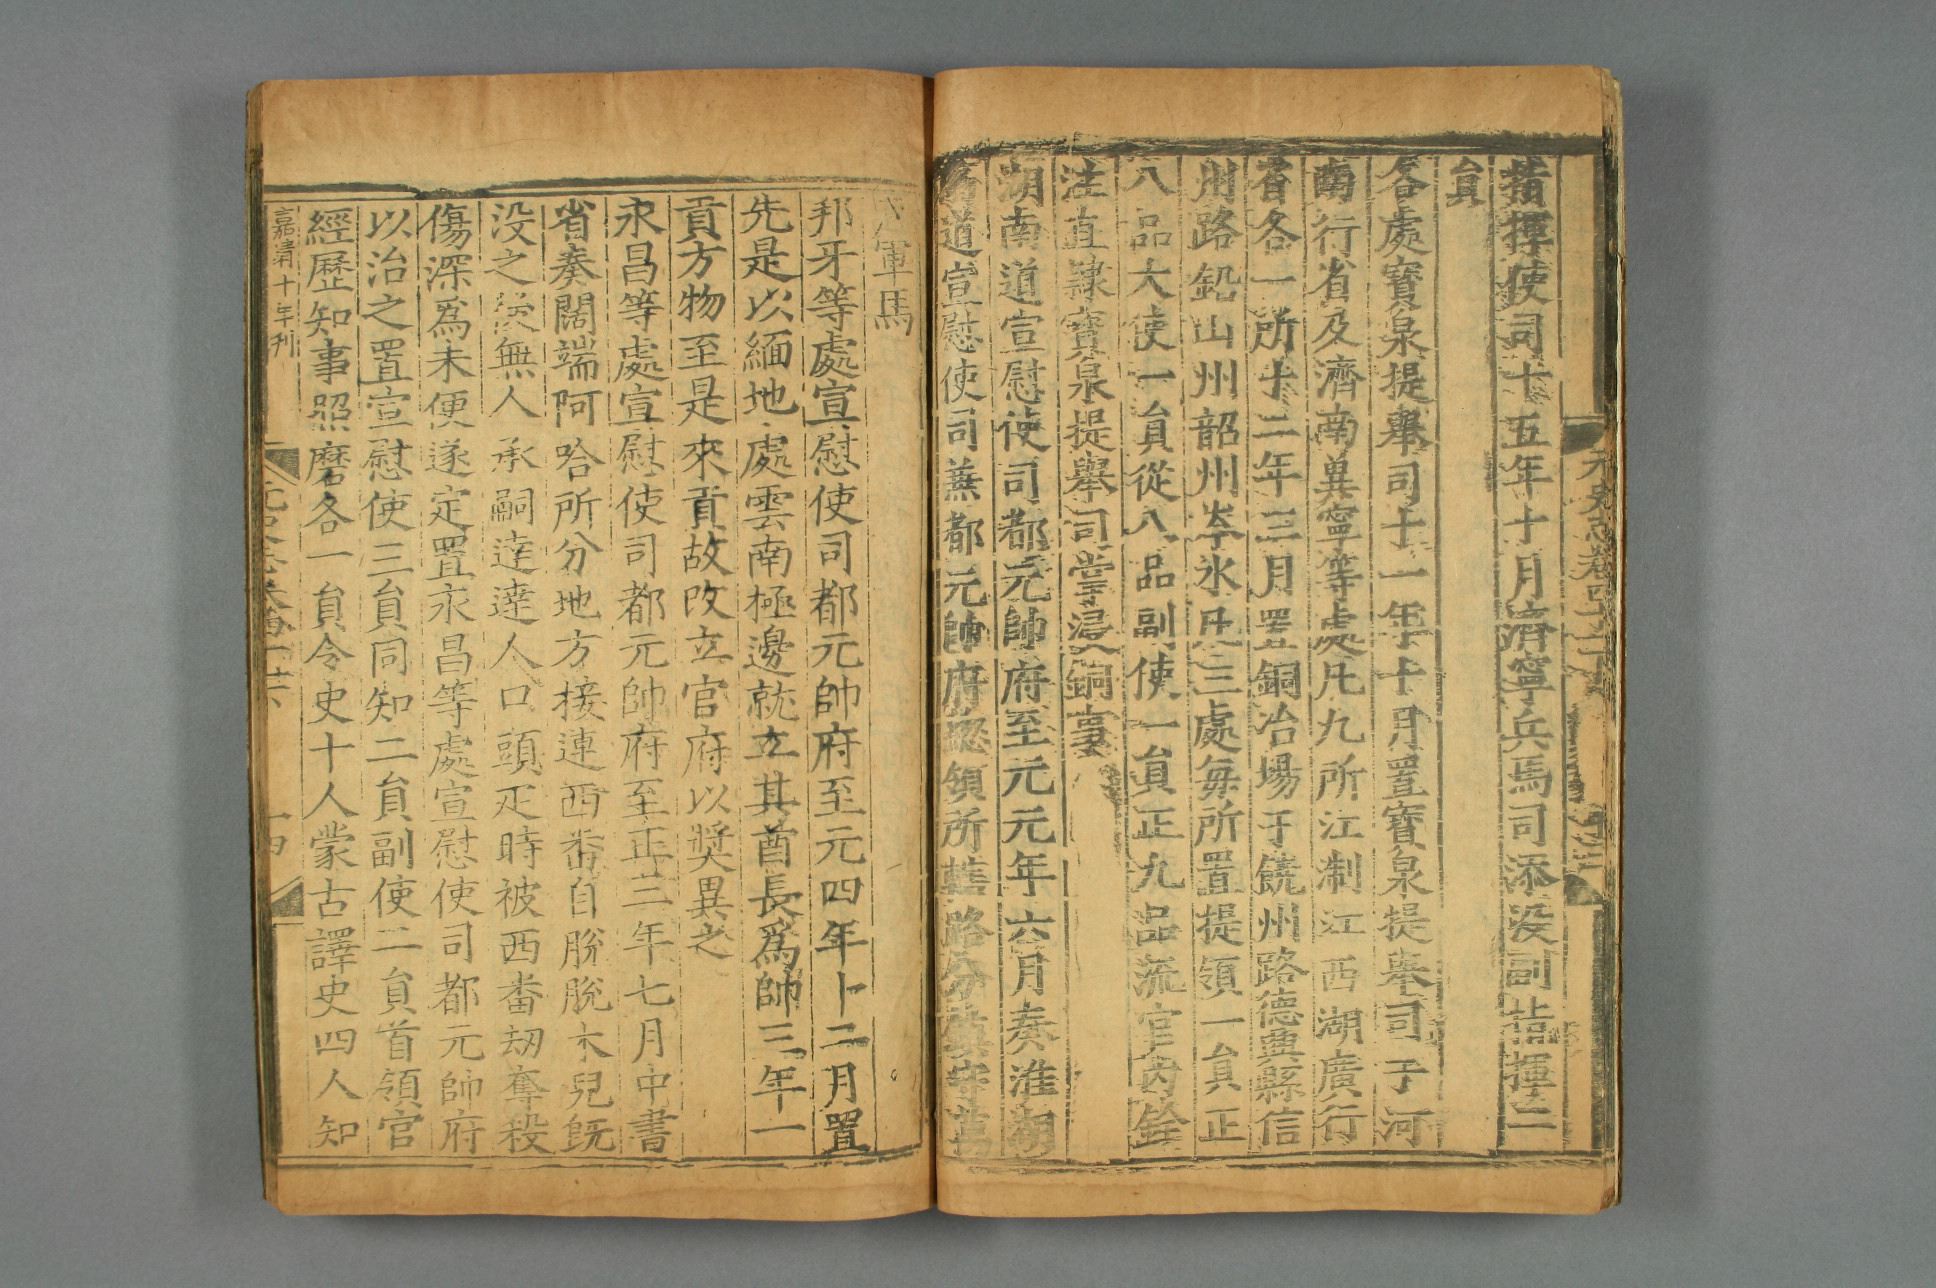 指揮使司十五年十月濟寧兵馬司添設副指揮二
員
各處寳泉提舉司十一年十月置寳泉提舉司于河
南行省及濟南冀寧等處凡九所江制江西湖廣行
省各一所十二年三月置銅冶場于饒州路德興縣信
州路鉛山州韶州岑水凡三處每所置提領一員正
八品大使一員從八品副使一員正九品流官內銓
注直隷寳泉提舉司掌浸銅事
湖南道宣慰使司都元帥府至元元年六月奏准湖
南道宣慰使司兼都元帥府緫領所轄路分鎮守萬
戶軍馬
邦牙等處宣慰使司都元帥府至元四年十二月置
先是以緬地處雲南極邊就立其酋長爲帥三年一
貢方物至是來貢故改立官府以奬異之
永昌等處宣慰使司都元帥府至正三年七月中書
省奏闊端阿哈所分地方接連西番自脫脫木兒旣
没之後無人承嗣達達人口頭疋時被西番刼奪殺
傷深爲未便遂定置永昌等處宣慰使司都元帥府
以治之置宣慰使三員同知二員副使二員首領官
經歷知事照磨各一員令史十人蒙古譯史四人知
嘉靖十年刊